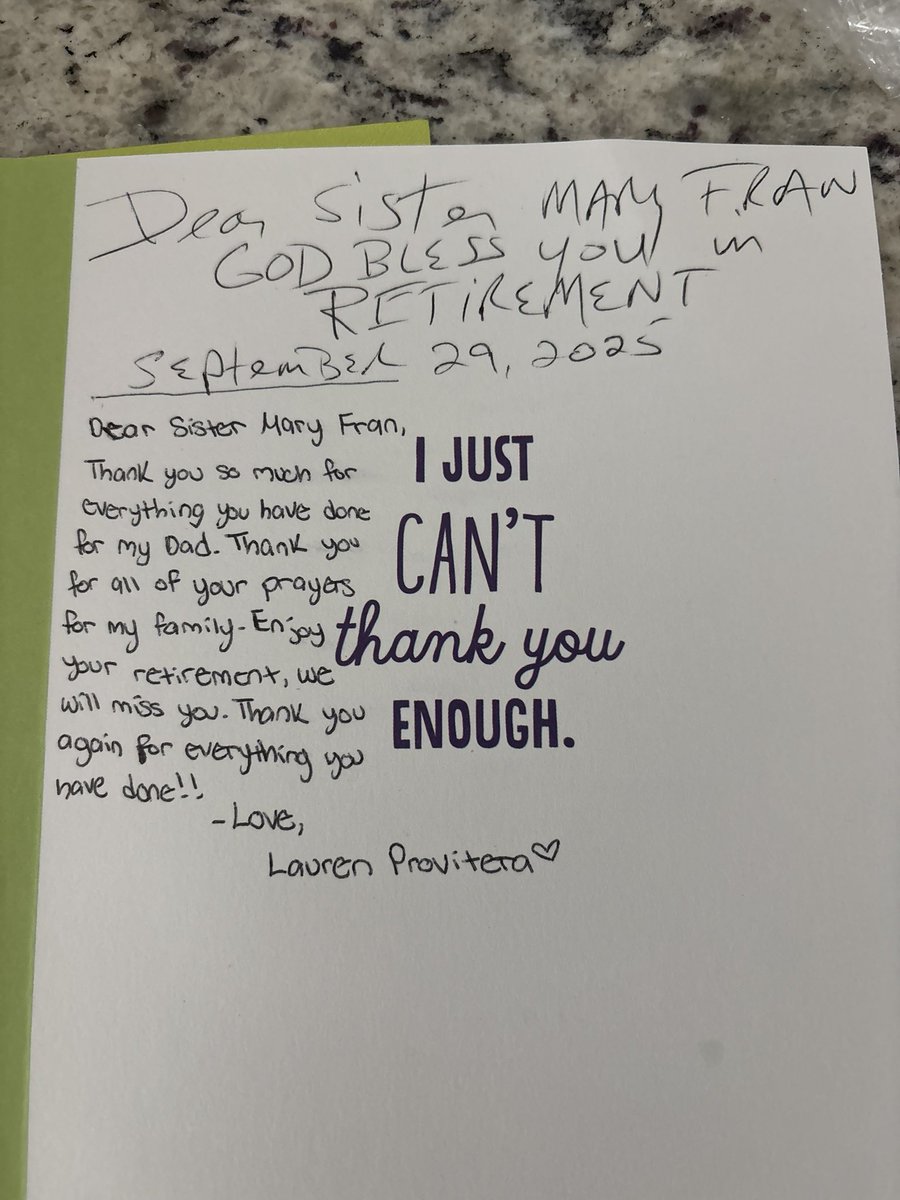 Dear Sister MARY FRAN
GOD BLESS YOU in
RETIREMENT
SEPTEMBER 29, 2025
Dear Sister Mary Fran,
Thank you so much for
everything you have done
for my Dad. Thank you
for all of your prayers
for my family. Enjoy
your retirement, we
will miss you. Thank you
again for everything you
have done!!
-Love,
Lauren Provitera♡
I JUST
CAN'T
thank you
ENOUGH.